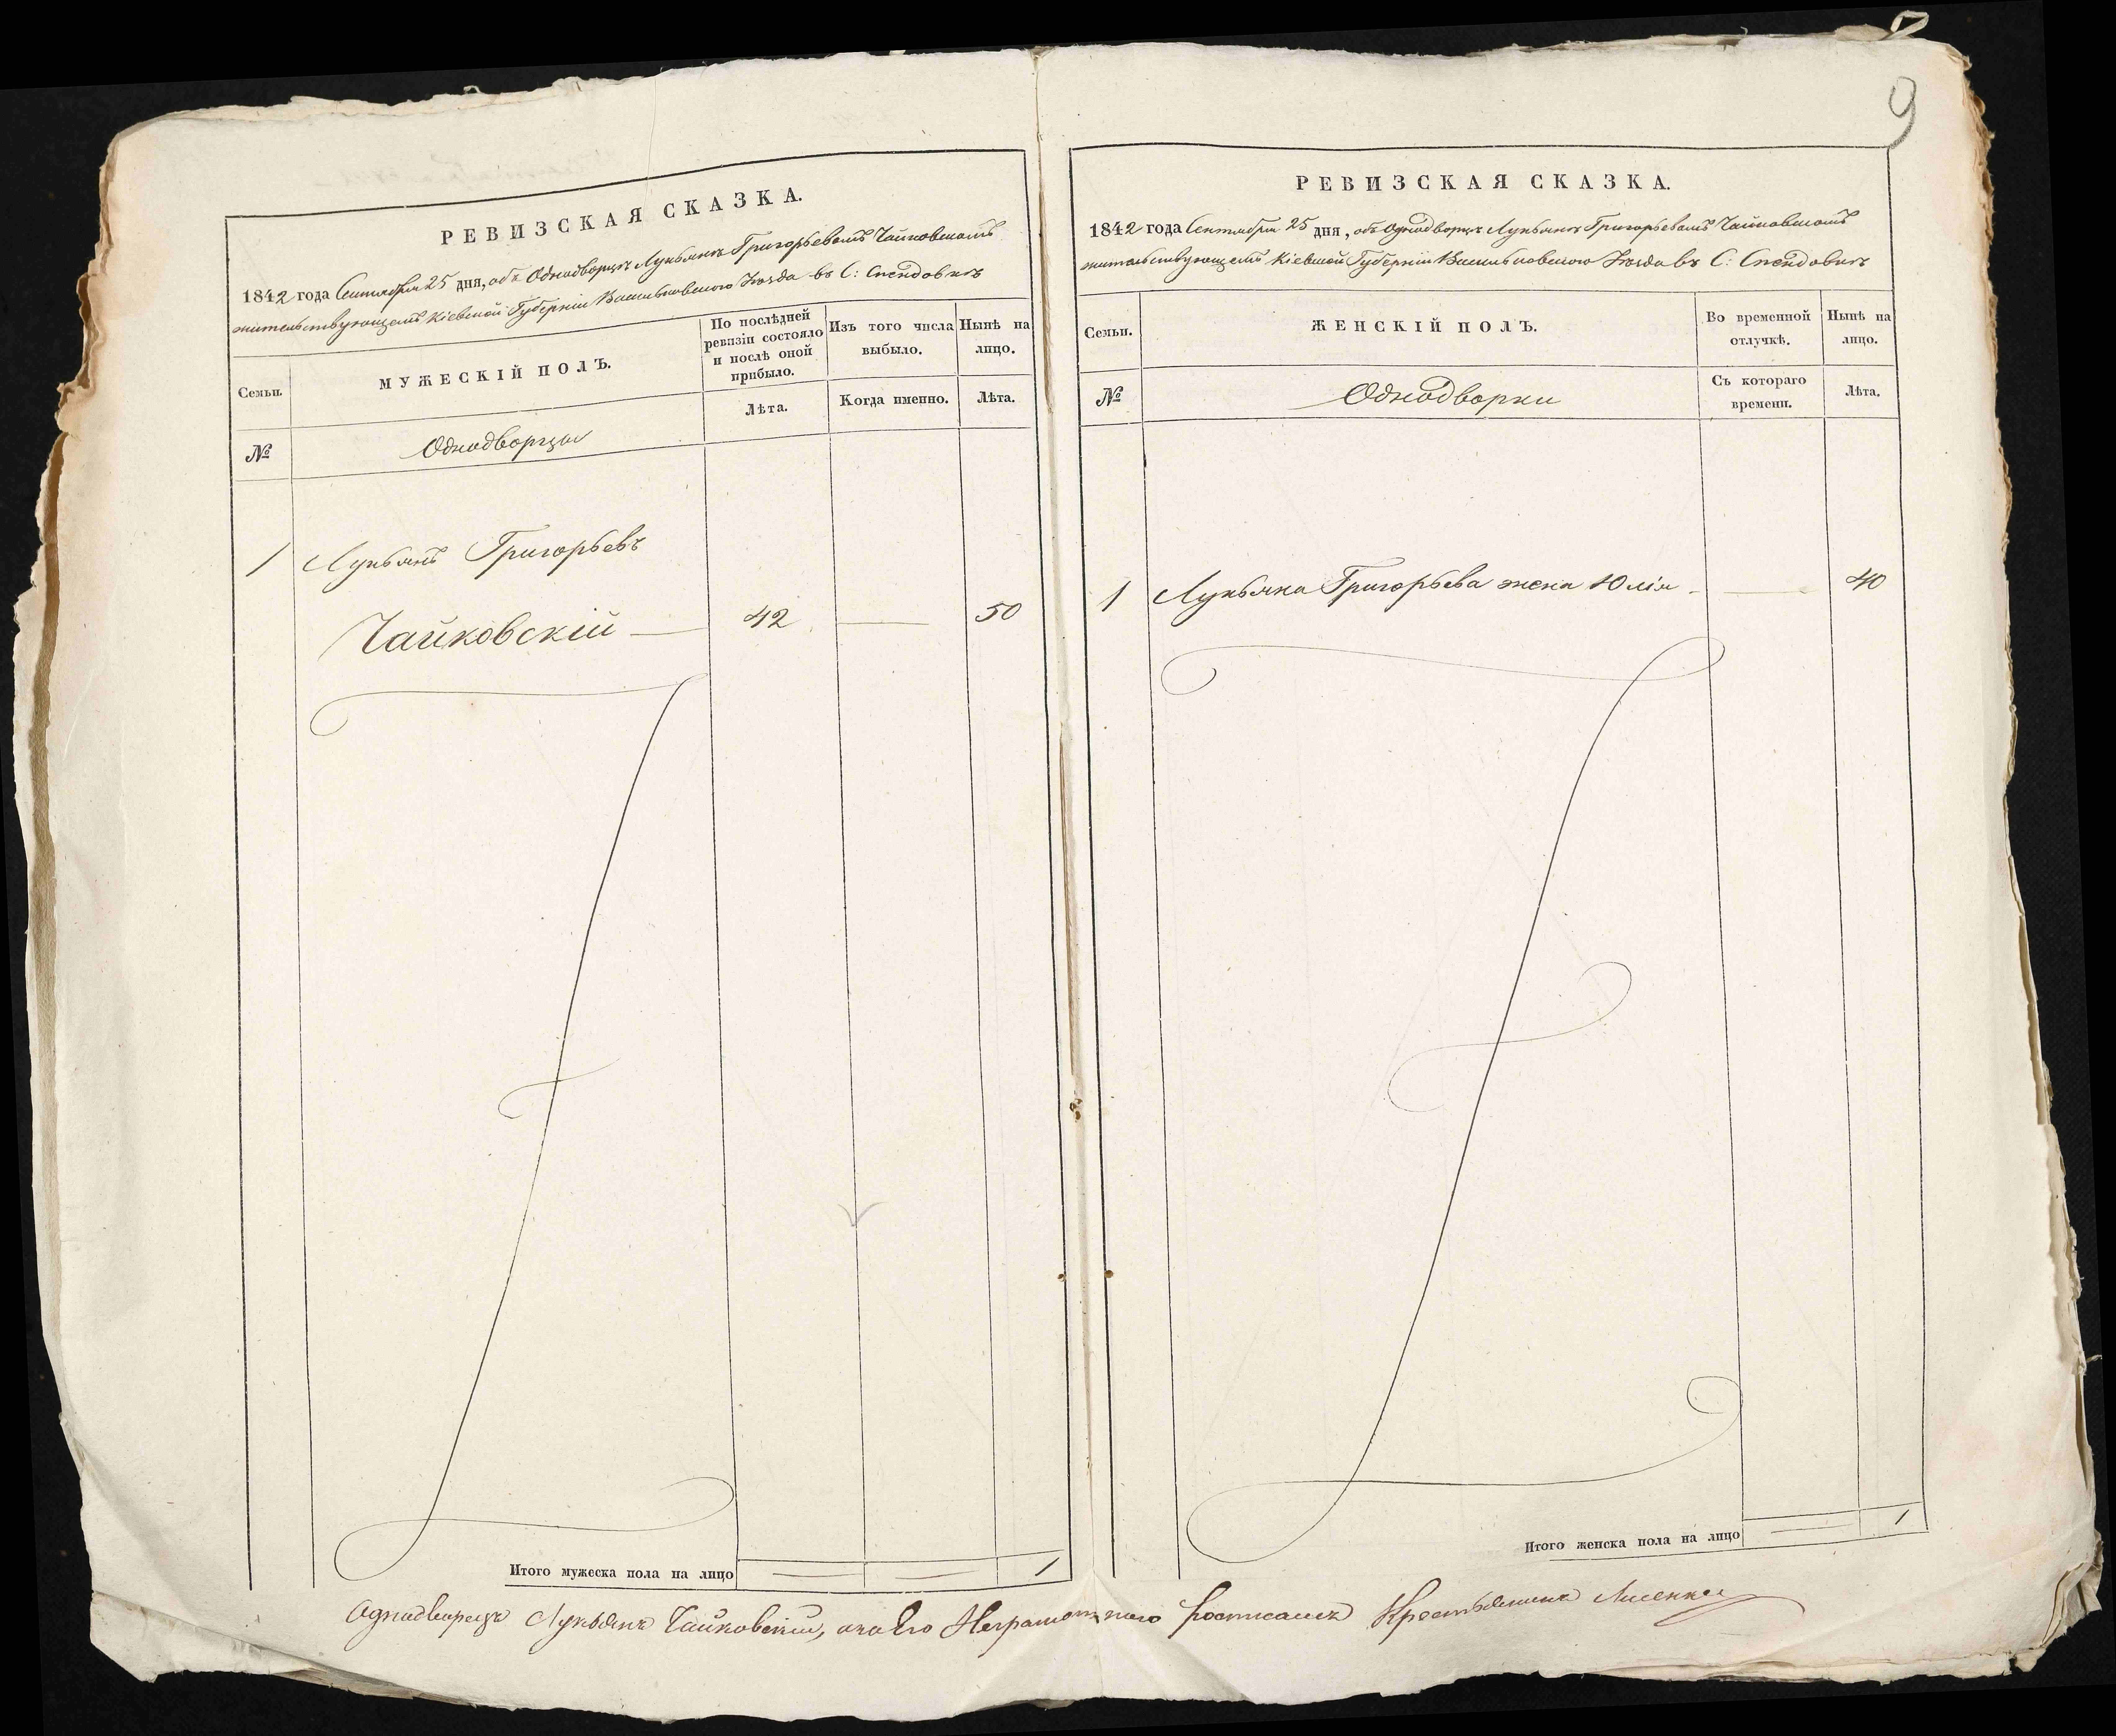 9
РЕВИЗСКАЯ СКАЗКА.
1842 года Сентября 25 дня, объ Однодворцѣ Лукьянѣ Григорьевомъ Чайковскомъ
жительствующемъ Кіевской Губерніи Васильковскаго Уѣзда въ С:
Семьи.
МУЖЕСКІЙ ПОЛЪ.
По послѣдней
ревизіи состояло
и послѣ оной
прибыло.
Изъ того числа
выбыло.
Нынѣ на
лицо.
Лѣта.
Когда именно.
Лѣта.
№
Однодворцы
1 Лукьянъ Григорьевъ
Чайковскій 42 50
Итого мужеска пола на лицо 1
РЕВИЗСКАЯ СКАЗКА.
1842 года Сентября 25 дня, объ Однодворцѣ Лукьянѣ Григорьевомъ Чайковскомъ
жительствующемъ Кіевской Губерніи Васильковскаго Уѣзда въ С:
Семьи.
ЖЕНСКІЙ ПОЛЪ.
Во временной
отлучкѣ.
Нынѣ на
лицо.
№
Однодворки
Съ котораго
времени.
Лѣта.
1 Лукьяна Григорьева жена Юлія 40
Итого женска пола на лицо 1
Однодворецъ Лукьянъ Чайковскій, а за Его Неграмотнаго росписался Крестьянинъ Лисенко